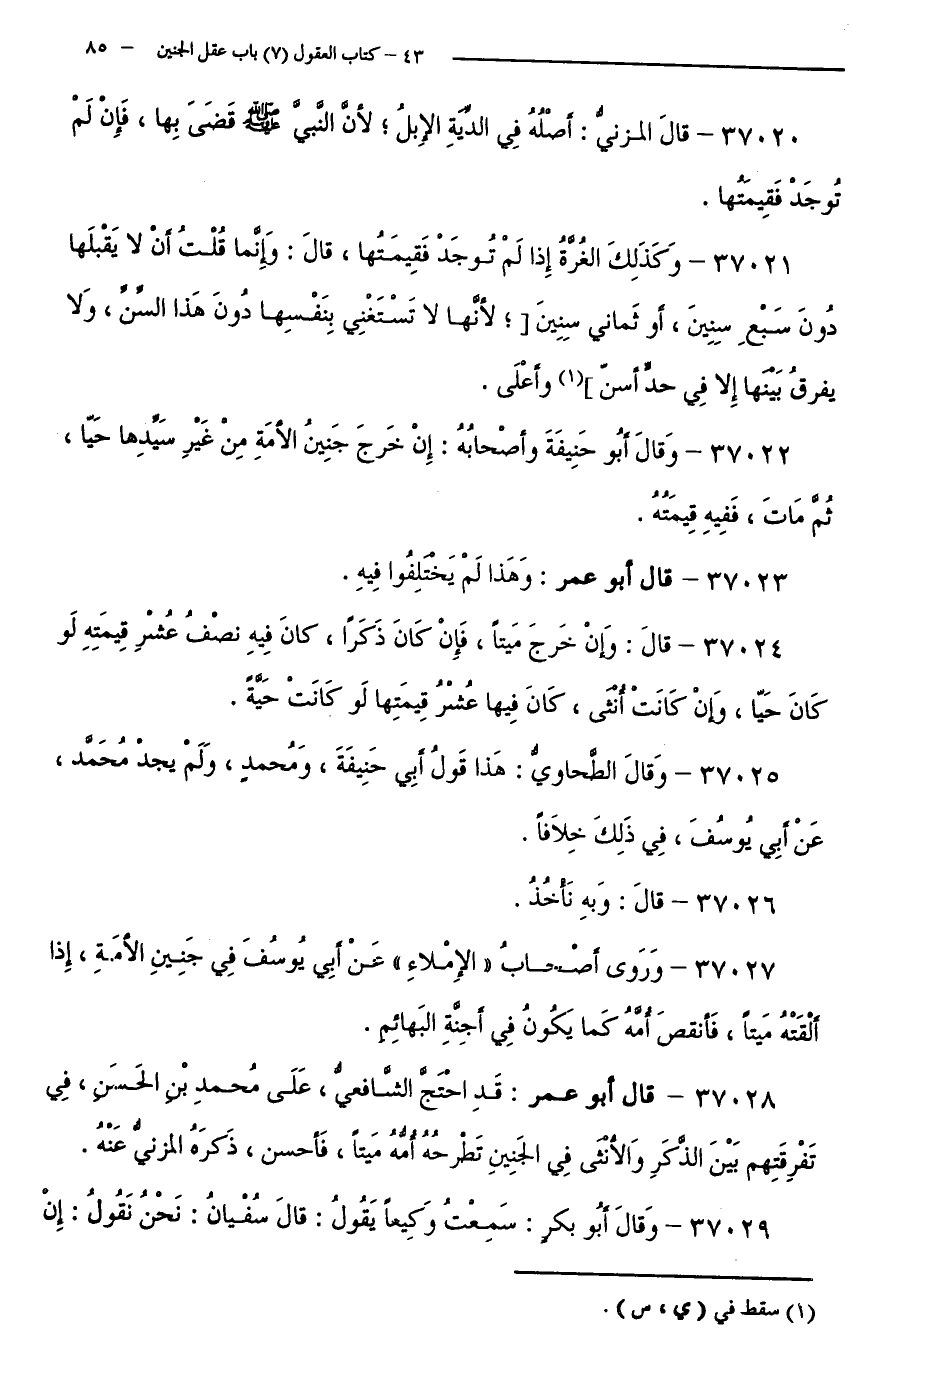 ٤٣ – كتاب العقول (٧) باب عقل الجنين – ٨٥
٣٧٠٢٠ – قالَ المزنيُّ : أَصْلُهُ فِي الدِّيَةِ الإِبلُ ؛ لأنَّ النَّبيَّ ﷺ قَضَىَ بِها ، فَإِنْ لَمْ
تُوجَدْ فَقِيمَتُها .
٣٧٠٢١ – وَكَذَلِكَ الغُرَّةُ إِذا لَمْ تُوجَدْ فَقِيمَتُها ، قالَ : وَإِنَّما قُلْتُ أَنْ لا يَقْبَلَها
دُونَ سَبْعِ سِنِينَ ، أَو ثَماني سِنِينَ [ ؛ لأَنَّها لا تَسْتَغْنِي بِنَفْسِها دُونَ هَذا السِّنِّ ، وَلا
يفرقُ بَيْنَها إِلا فِي حدِّ أسنّ ](١) وأَعْلَى .
٣٧٠٢٢ – وَقالَ أَبُو حَنِيفَةَ وأَصْحابُهُ : إِنْ خَرَجَ جَنِينُ الأَمَةِ مِنْ غَيْرِ سَيِّدِها حَيّا ،
ثُمَّ مَاتَ ، فَفِيهِ قِيمَتُهُ .
٣٧٠٢٣ – قال أبو عمر : وَهَذا لَمْ يَخْتَلِفُوا فِيهِ .
٣٧٠٢٤ – قالَ : وَإِنْ خَرَجَ مَيتاً ، فَإِنْ كَانَ ذَكَرًا ، كانَ فِيهِ نصْفُ عُشْرِ قِيمَتِهِ لَو
كَانَ حَيّا ، وَإِنْ كَانَتْ أُنْثَى ، كَانَ فِيها عُشْرُ قِيمَتِها لَو كَانَتْ حَيَّةً .
٣٧٠٢٥ – وَقالَ الطَّحاويُّ : هَذا قَولُ أَبِي حَنِيفَةَ ، وَمُحمدٍ ، وَلَمْ يجدْ مُحَمَّد ،
عَنْ أَبِي يُوسُفَ ، فِي ذَلِكَ خِلاَفاً .
٣٧٠٢٦ – قالَ : وَبِهِ نَأْخُذُ .
٣٧٠٢٧ – وَرَوَى أَصْحابُ « الإِمْلاءِ » عَنْ أَبِي يُوسُفَ فِي جَنِينِ الأَمَةِ ، إِذا
أَلْقَتْهُ مَيتاً ، فَأنقصَ أُمَّهُ كَما يَكُونُ فِي أَجِنَّةِ البَهائِمِ .
٣٧٠٢٨ – قال أبو عمر : قَدِ احْتَجَّ الشَّافعيُّ ، عَلَى مُحمدِ بْنِ الحَسَنِ ، فِي
تَفْرِقَتِهِم بَيْنَ الذَّكَرِ وَالأُنْثَى فِي الجَنِينِ تَطْرحُهُ أُمُّهُ مَيتاً ، فَأحسن ، ذَكَرَهُ المزنيُّ عَنْهُ .
٣٧٠٢٩ – وَقالَ أَبُو بكرٍ : سَمِعْتُ وَكِيعاً يَقُولُ : قالَ سُفْيانُ : نَحْنُ نَقُولُ : إِنْ
(١) سقط في ( ي ، ص ) .